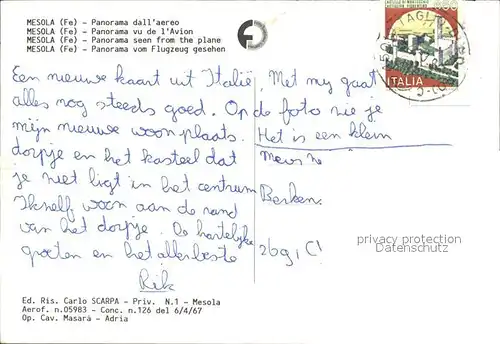 MESOLA (Fe) - Panorama dall'aereo
MESOLA (Fe) - Panorama vu de l'Avion
MESOLA (Fe) - Panorama seen from the plane
MESOLA (Fe) - Panorama vom Flugzeug gesehen
ITALIA
Een nieuwe kaart uit Italië, Met my gaat
alles nog steeds goed. Op de foto zie je
mijn nieuwe woonplaats. Het is een klein
dorpje en het kasteel dat
je ziet ligt in het centrum
Ikzelf woon aan de rand
van het dorpje. De hartelijke
groeten en het allerbeste
Rik
Berken
privacy protection
Datenschutz
Ed. Ris. Carlo SCARPA - Priv. N.1 - Mesola
Aerof. n.05983 - Conc. n.126 del 6/4/67
Op. Cav. Masarà - Adria